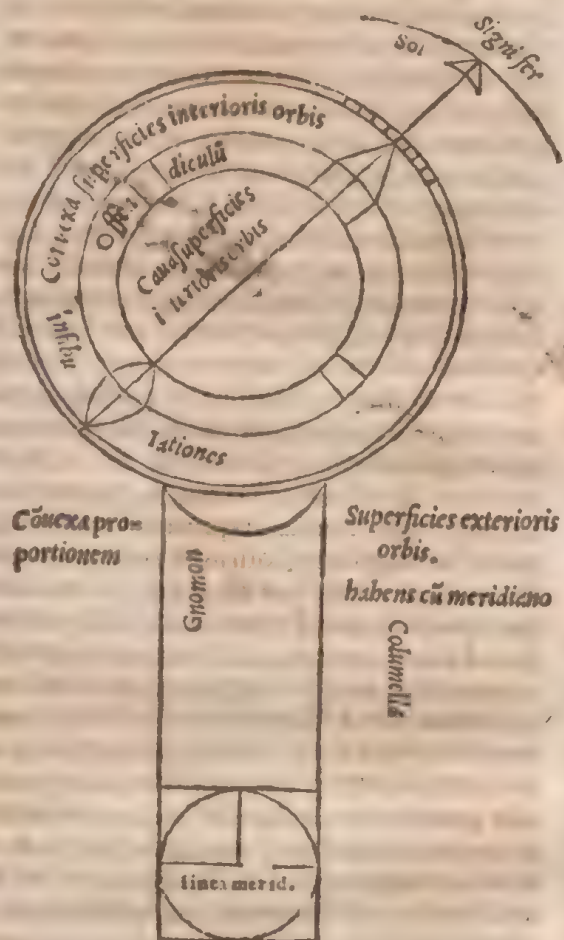 Signifer
Sol
Conuexa superficies interioris orbis
diculū
Caua superficies
interioris orbis
infibu
lationes
Cōuexa pro=
portionem
Superficies exterioris
orbis.
habens cū meridiano
Gnomon
Columella
linea merid.